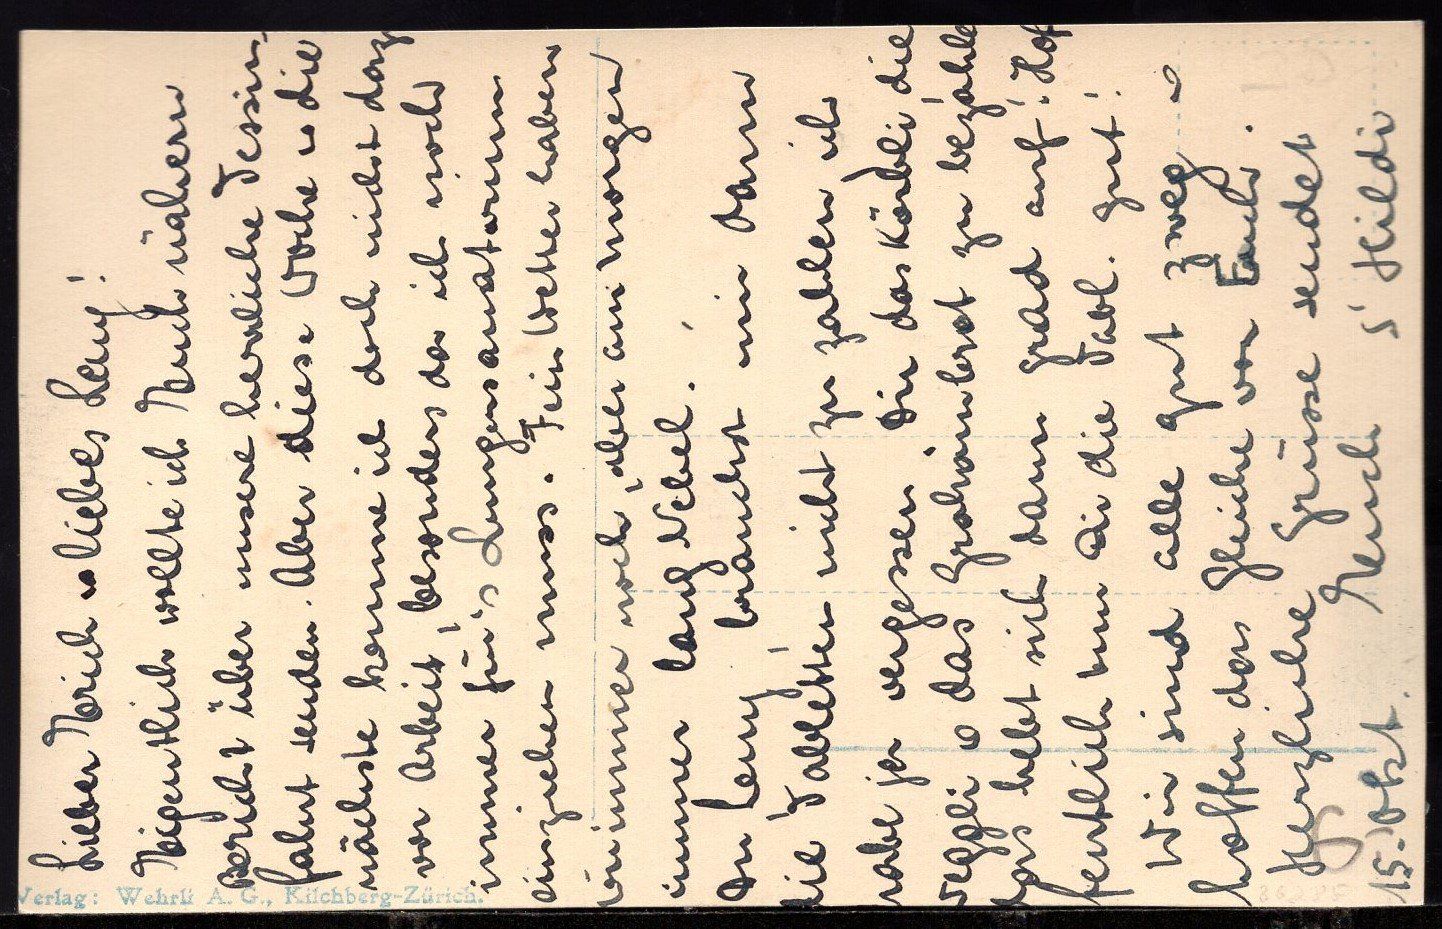 Lieber Erich u liebes Leny!
Eigentlich wollte ich Euch nähern
Bericht über unsere herrliche Tessin-
fahrt senden. Aber diese Woche u die
nächste komme ich doch nicht dazu
vor Arbeit, besonders da ich noch
immer für's Lungensanatorium
einziehen muss. Fein Wetter haben
wir immer noch, aber am morgen
immer lang Nebel.
Du Leny, brauchst mir dann
die Tabletten nicht zu zahlen ich
habe ja vergessen Dir das Körbli die
Weggli u das Grahambrot zu bezahlen
das hebt sich dann grad auf! Hof-
fentlich tun Dir die Tabl. gut!
Wir sind alle gut zweg u
hoffen das Gleiche von Euch.
Herzliche Grüsse sendet
15. Okt. Euch s' Hildi
Verlag: Wehrli A. G., Kilchberg-Zürich.